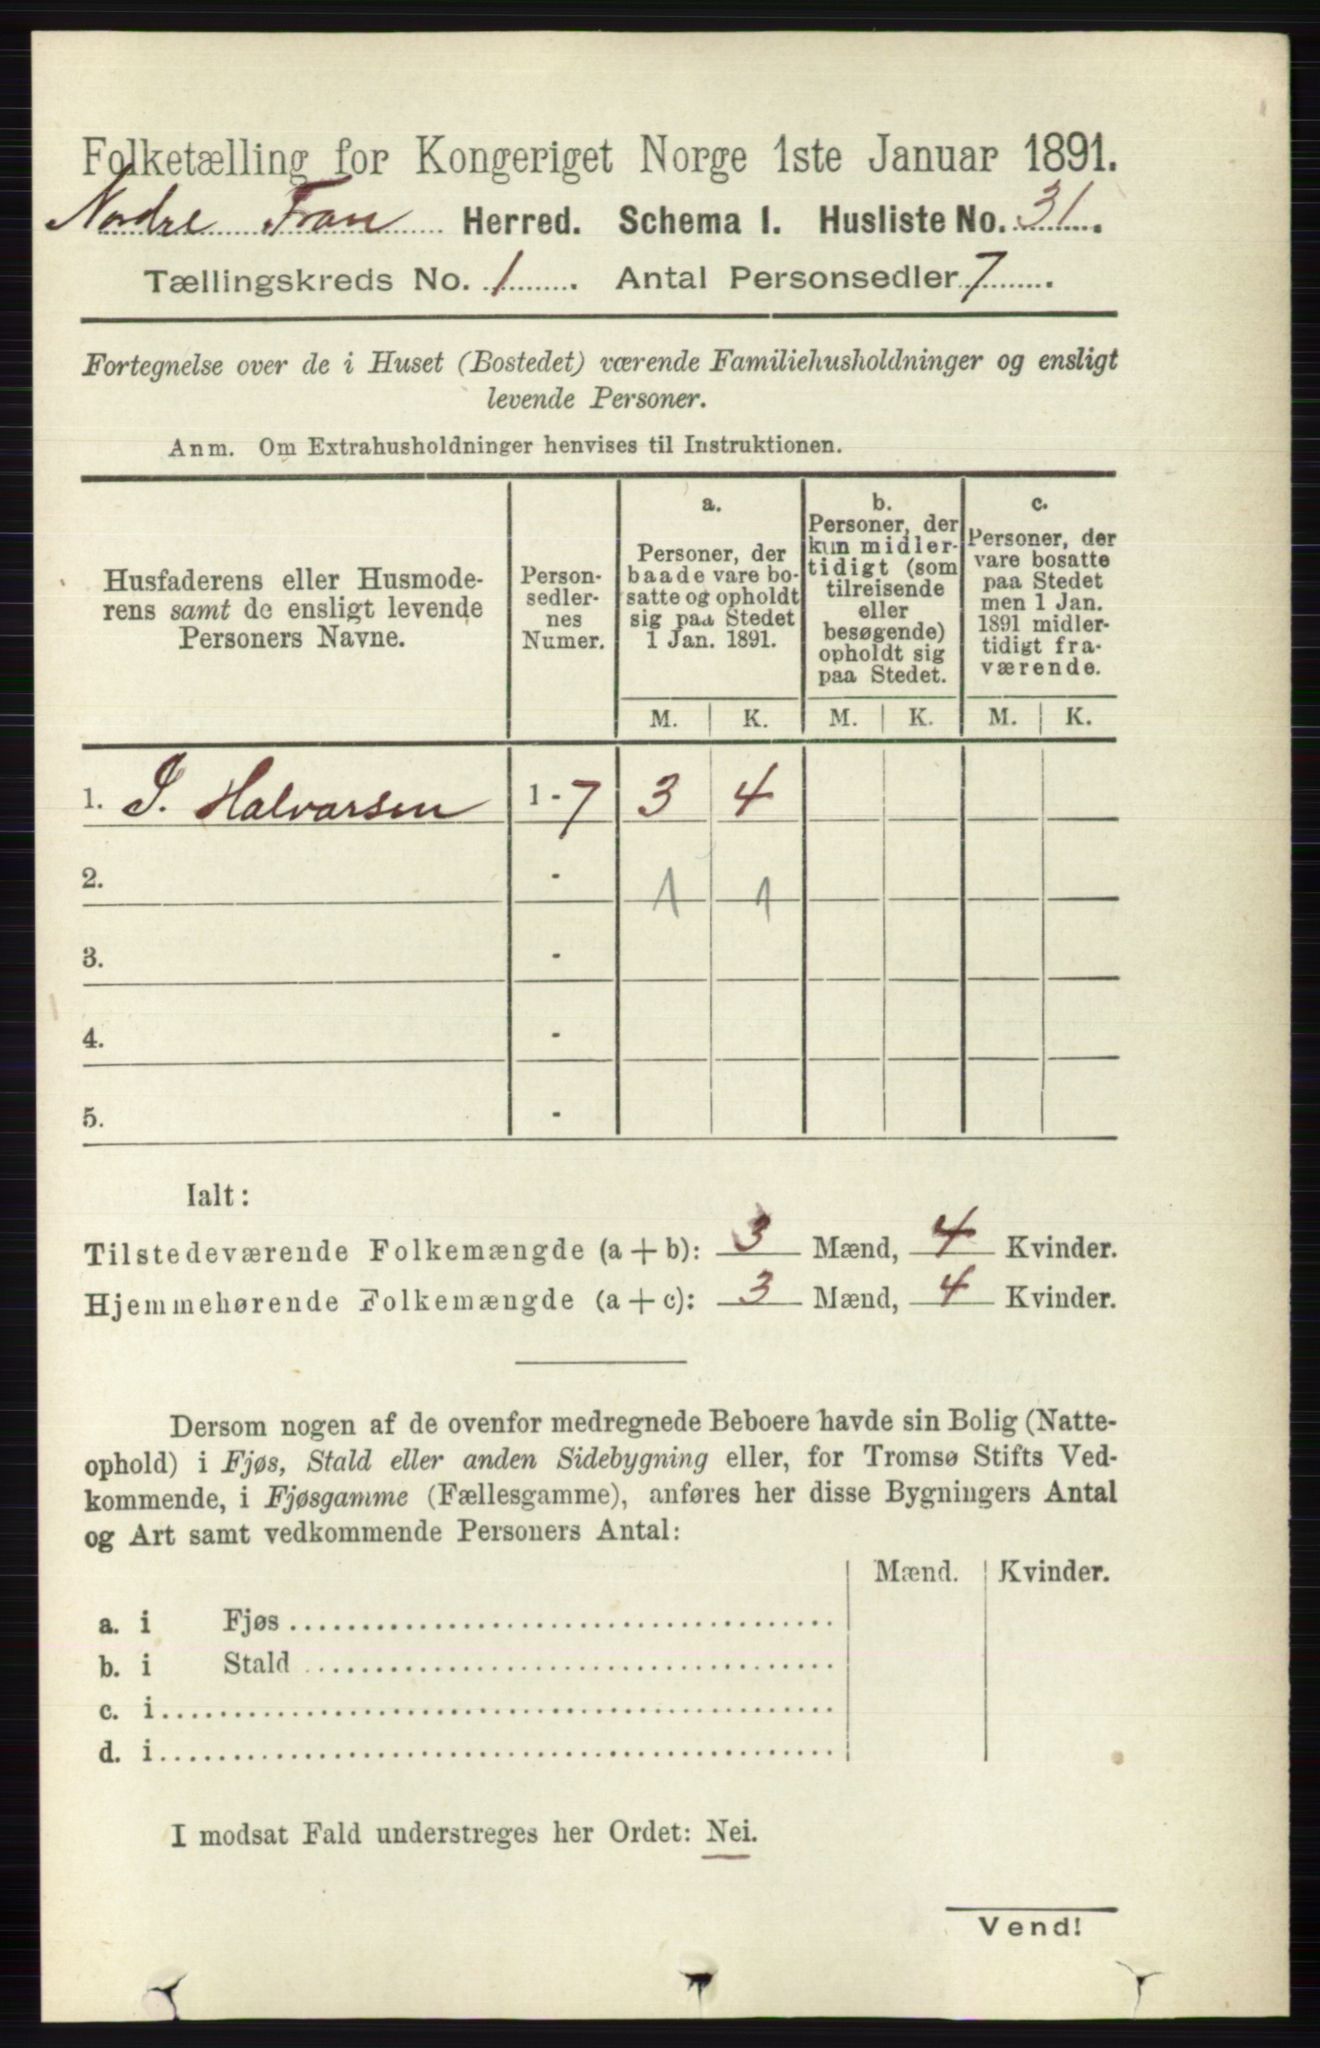 Folketælling for Kongeriget Norge 1ste Januar 1891.
Nordre Fron Herred. Schema I. Husliste No. 31.
Tællingskreds No. 1. Antal Personsedler 7.
Fortegnelse over de i Huset (Bostedet) værende Familiehusholdninger og ensligt
levende Personer.
Anm. Om Extrahusholdninger henvises til Instruktionen.
Husfaderens eller Husmode-
rens samt de ensligt levende
Personers Navne.
Person-
sedler-
nes
Numer.
a.
Personer, der
baade vare bo-
satte og opholdt
sig paa Stedet
1 Jan. 1891.
b.
Personer, der
kun midler-
tidigt (som
tilreisende
eller
besøgende)
opholdt sig
paa Stedet.
c.
Personer, der
vare bosatte
paa Stedet
men 1 Jan.
1891 midler-
tidigt fra-
værende.
M. K. M. K. M. K.
1. J. Halvarsen 1 - 7 3 4
2. - 1 1
3. -
4. -
5. -
Ialt:
Tilstedeværende Folkemængde (a + b): 3 Mænd, 4 Kvinder.
Hjemmehørende Folkemængde (a + c): 3 Mænd, 4 Kvinder.
Dersom nogen af de ovenfor medregnede Beboere havde sin Bolig (Natte-
ophold) i Fjøs, Stald eller anden Sidebygning eller, for Tromsø Stifts Ved-
kommende, i Fjøsgamme (Fællesgamme), anføres her disse Bygningers Antal
og Art samt vedkommende Personers Antal:
Mænd. Kvinder.
a. i Fjøs
b. i Stald
c. i
d. i
I modsat Fald understreges her Ordet: Nei.
Vend!